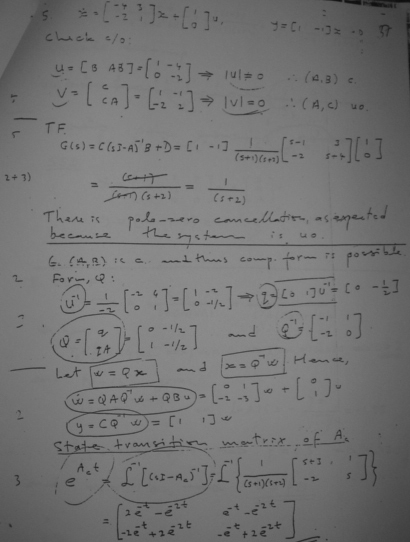 ẋ = [-4 3; -2 1] x + [1; 0] u, y = [1 -1] x
Check c/o:
U = [B AB] = [1 -4; 0 -2] ⇒ |U| ≠ 0 ∴ (A,B) c.
V = [C; CA] = [1 -1; -2 2] ⇒ |V| = 0 ∴ (A,C) uo.
TF
G(s) = C(sI-A)⁻¹B + D = [1 -1] 1/((s+1)(s+2)) [s-1 3; -2 s+4] [1; 0]
= (s+1)/((s+1)(s+2)) = 1/(s+2)
There is pole-zero cancellation, as expected
because the system is uo.
(A,B) is c. and thus comp. form is possible
Form, Q:
U⁻¹ = 1/-2 [-2 4; 0 1] = [1 -2; 0 -1/2] ⇒ q = [0 1] U⁻¹ = [0 -1/2]
Q = [q; qA] = [0 -1/2; 1 -1/2] and Q⁻¹ = [-1 1; -2 0]
Let w = Qx and x = Q⁻¹w. Hence,
ẇ = QAQ⁻¹w + QBu = [0 1; -2 -3] w + [0; 1] u
y = CQ⁻¹w = [1 1] w
State transition matrix of Ac
e^(Act) = L⁻¹[(sI-Ac)⁻¹] = L⁻¹{1/((s+1)(s+2)) [s+3 1; -2 s]}
= [2e^-t - e^-2t e^-t - e^-2t; -2e^-t + 2e^-2t -e^-t + 2e^-2t]